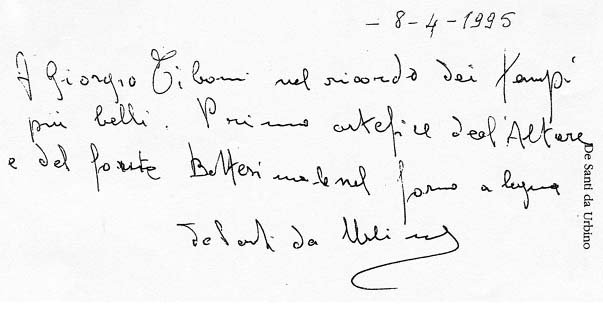 - 8-4-1995
A Giorgio Tiboni nel ricordo dei tempi
più belli. Primo artefice degl'Altare
e del fonte Battesimale nel forno a legna
De Santi da Urbino
De Santi da Urbino